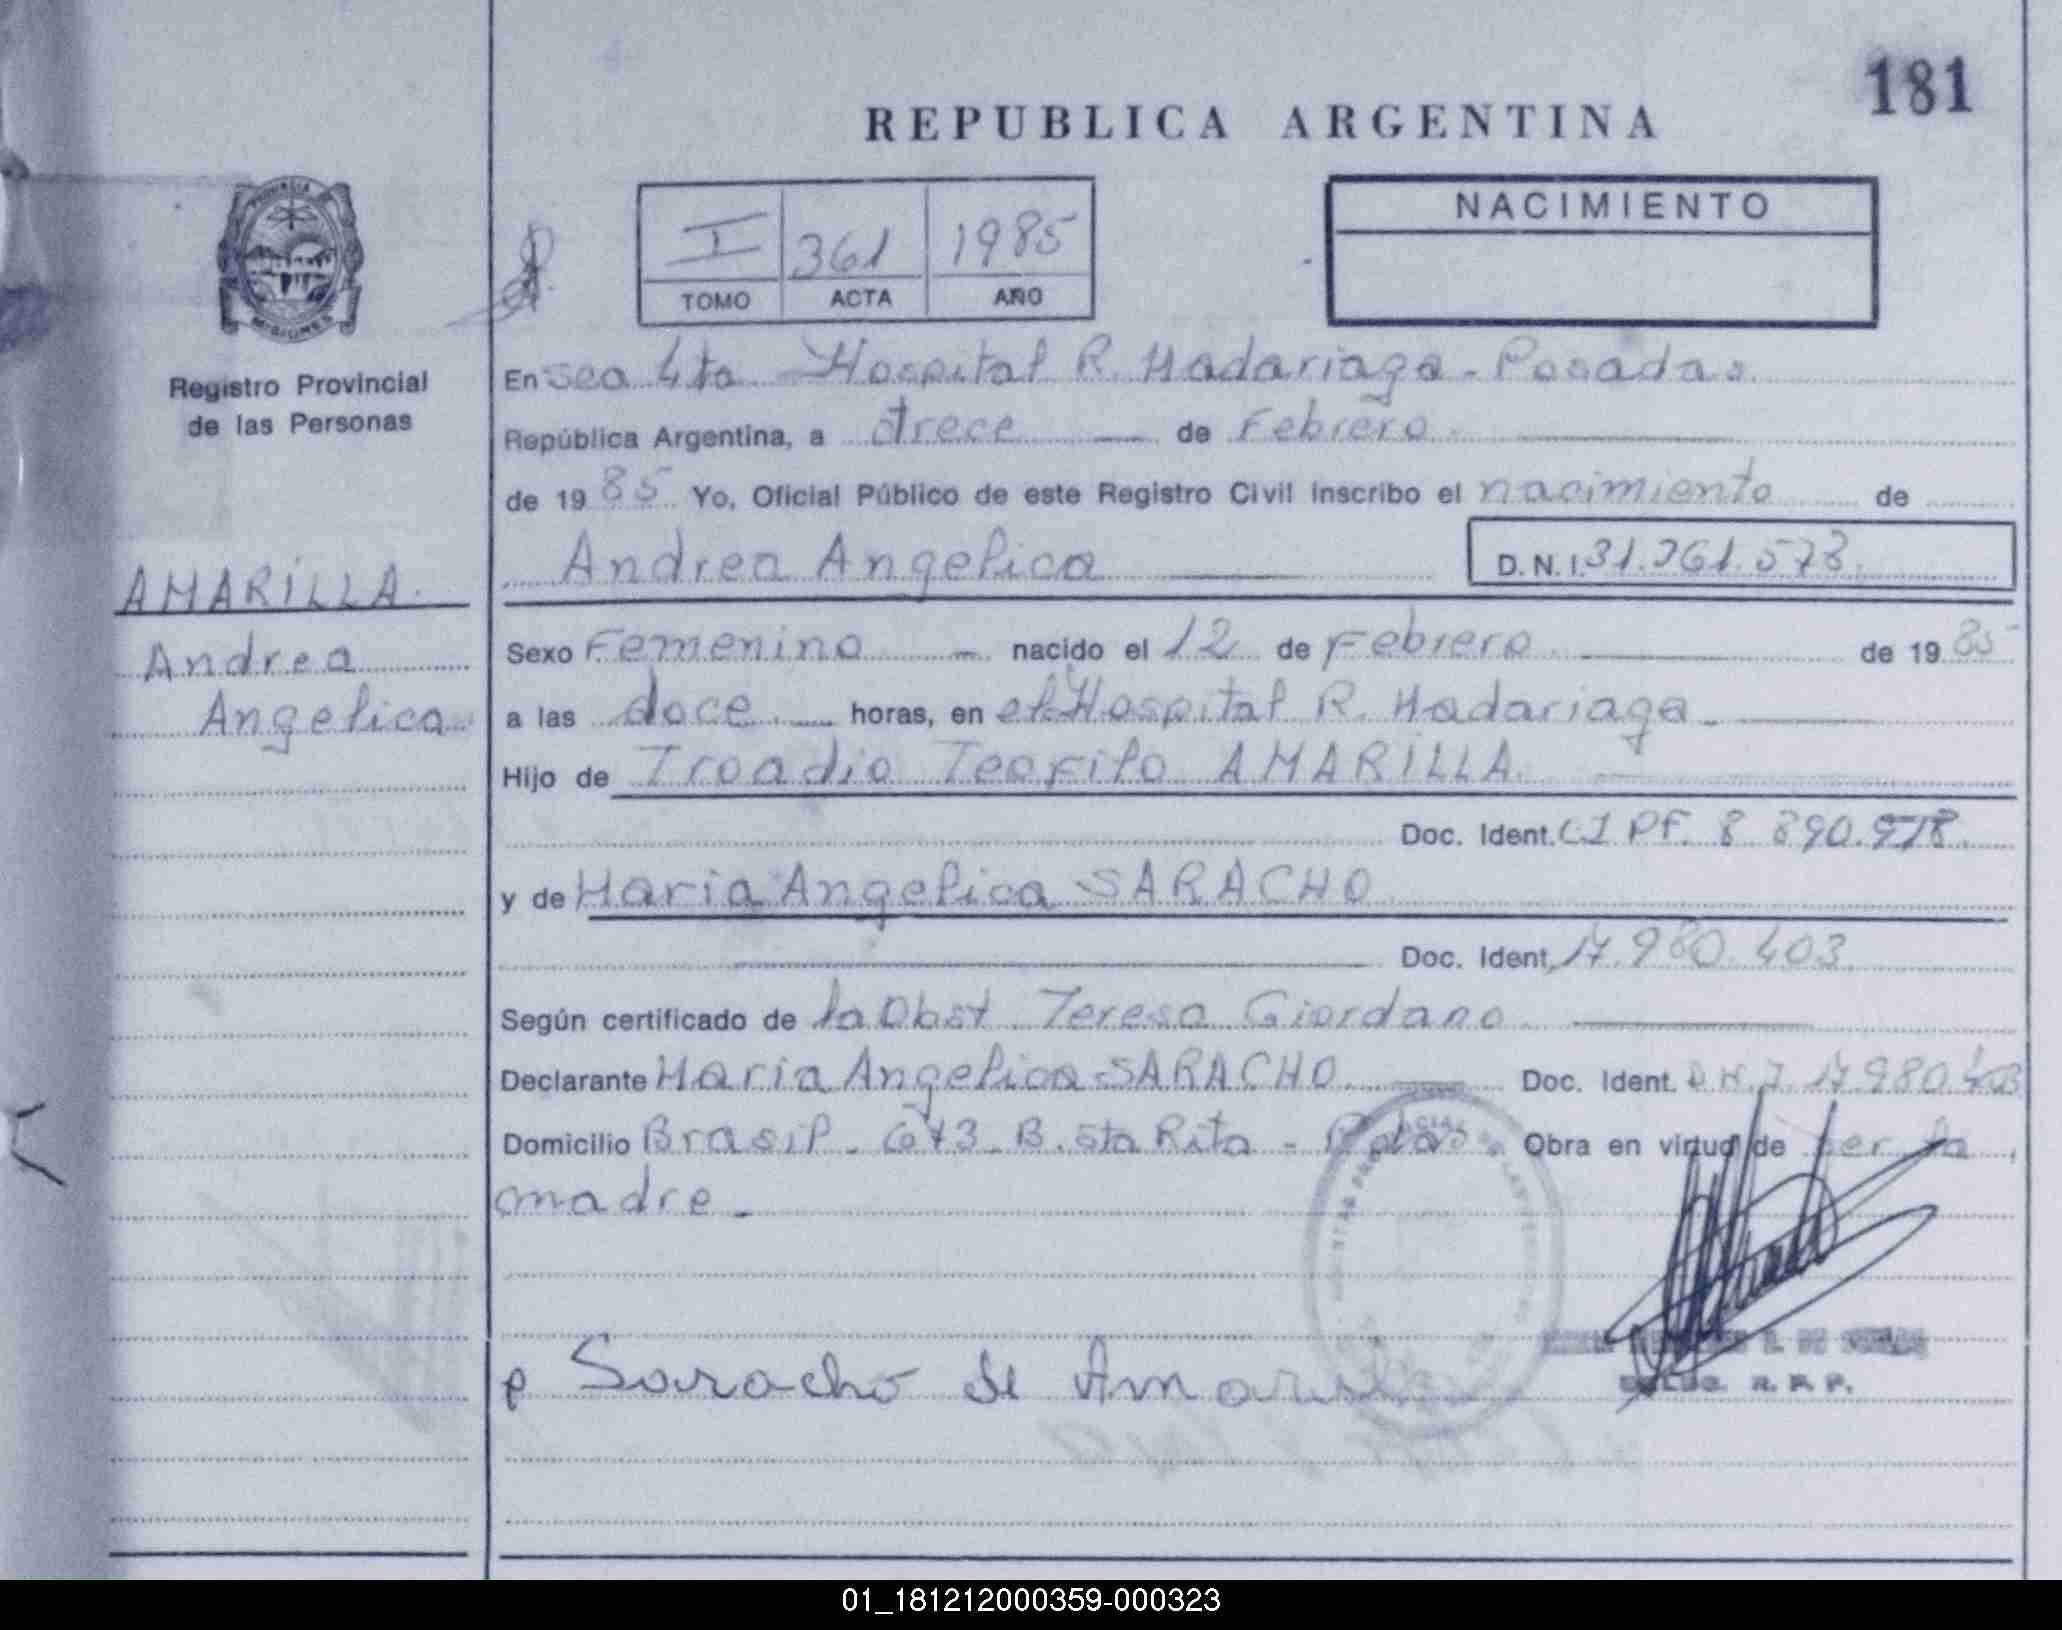 181
REPUBLICA ARGENTINA
PROVINCIA
MISIONES
Registro Provincial
de las Personas
I 361 1985
TOMO ACTA AÑO
NACIMIENTO
En sec 4ta Hospital R. Madariaga - Posadas
República Argentina, a trece de Febrero
de 19 85 Yo, Oficial Público de este Registro Civil inscribo el nacimiento de
Andrea Angelica
D.N.I. 31.361.573
AMARILLA
Andrea
Angelica
Sexo Femenino nacido el 12 de Febrero de 19 85
a las doce horas, en el Hospital R. Madariaga
Hijo de Troadio Teofilo AMARILLA
Doc. Ident. CI PF. 8 890.978
y de Maria Angelica SARACHO
Doc. Ident. 17.980.403
Según certificado de la Obst Teresa Giordano
Declarante Maria Angelica SARACHO Doc. Ident. D.N.I 17.980.403
Domicilio Brasil - 673 - B. Sta Rita - Obra en virtud de ser la
madre -
Saracho de Amarilla
R. P. P.
01_181212000359-000323